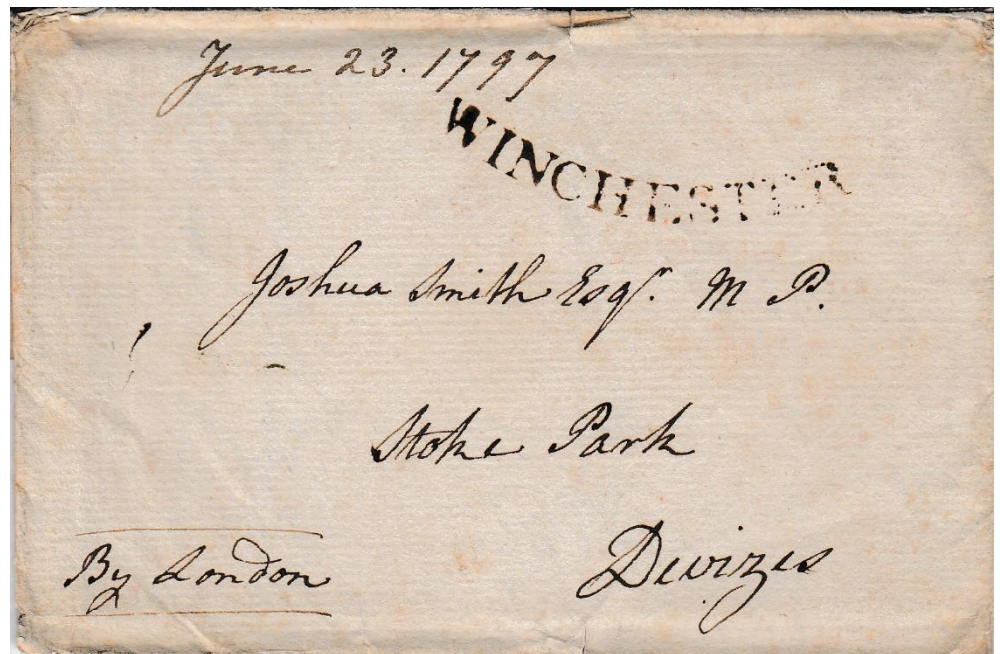 June 23. 1797
WINCHESTER
Joshua Smith Esqr. M P.
Stoke Park
Devizes
By London